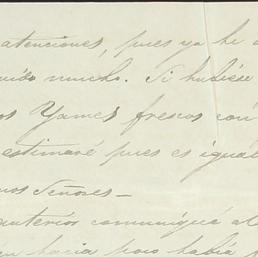 atenciones, pues ya he
mucho. Si hubiése
os Yames frescos con
estimaré pues es igual
nos Señores—
anterior comuniqué al
hacia poco había